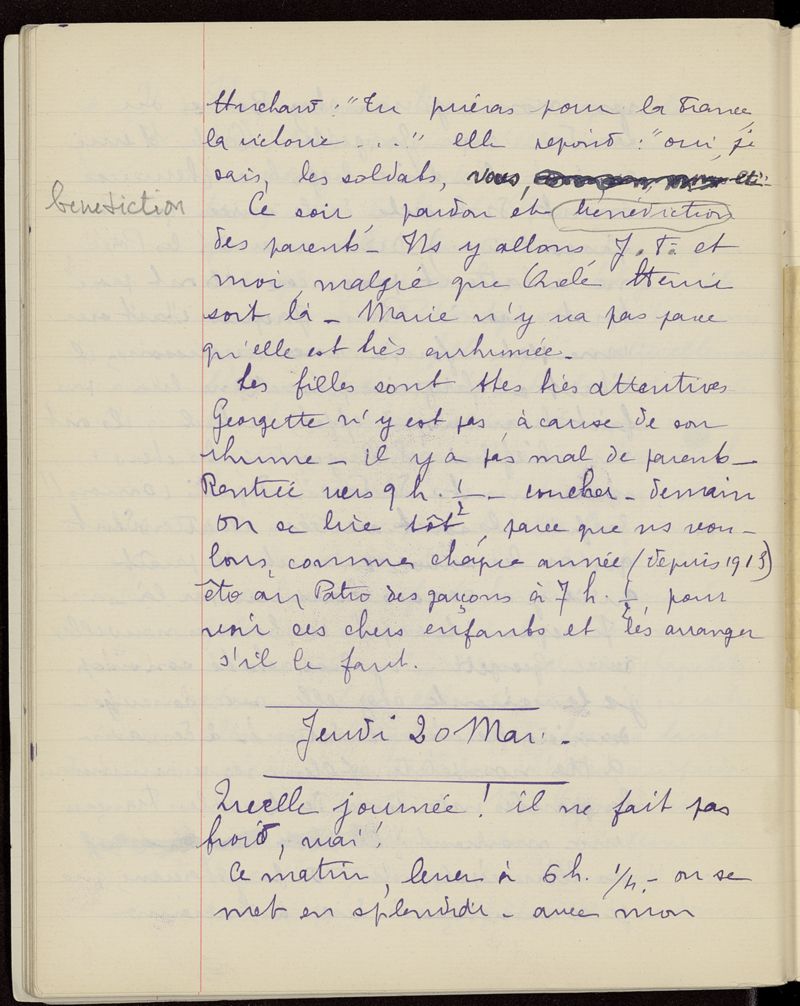 Huchard : "Tu prieras pour la France,
la victoire . . ." elle répond : "oui, je
sais, les soldats, vous, etc.."
benediction
Ce soir, pardon et bénédiction
des parents - Ns y allons J. T. et
moi, malgré que Henri
soit là - Marie n'y va pas parce
qu'elle est très enrhumée -
Les filles sont ttes très attentives
Georgette n'y est pas, à cause de son
rhume - il y a pas mal de parents -
Rentrée vers 9 h. 1/2 - coucher - demain
on se lève tôt, parce que ns vou-
lons, comme chaque année (depuis 1913)
être au Patro des garçons à 7 h. 1/2 pour
voir ces chers enfants et les arranger
s'il le faut.
Jeudi 20 Mai. -
Quelle journée ! il ne fait pas
froid, vrai !
Ce matin, lever à 6 h. 1/4. - on se
met en splendide - avec mon